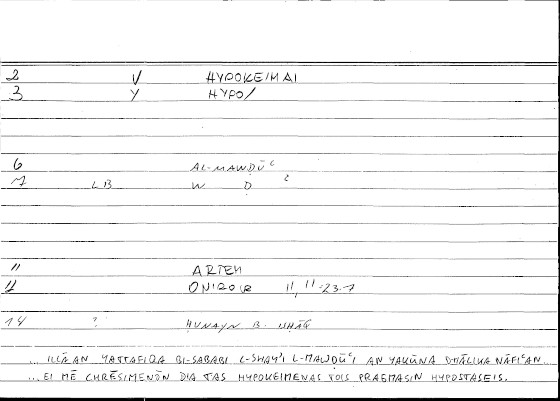 2 V HYPOKEIMAI
3 Y HYPO/
6 AL-MAWḌŪʿ
7 LB W Ḍ ʿ
11 ARTEM
ONIROCR 11, 11-23.7
14 ? ḤUNAYN B. ISḤĀQ
... ILLĀ AN YATTAFIQA BI-SABABI L-SHAYʾI L-MAWḌŪʿI AN YAKŪNA DHĀLIKA NĀFIʿAN ...
... EI MĒ CHRĒSIMENŌN DIA TAS HYPOKEIMENAS TOIS PRAGMASIN HYPOSTASEIS.